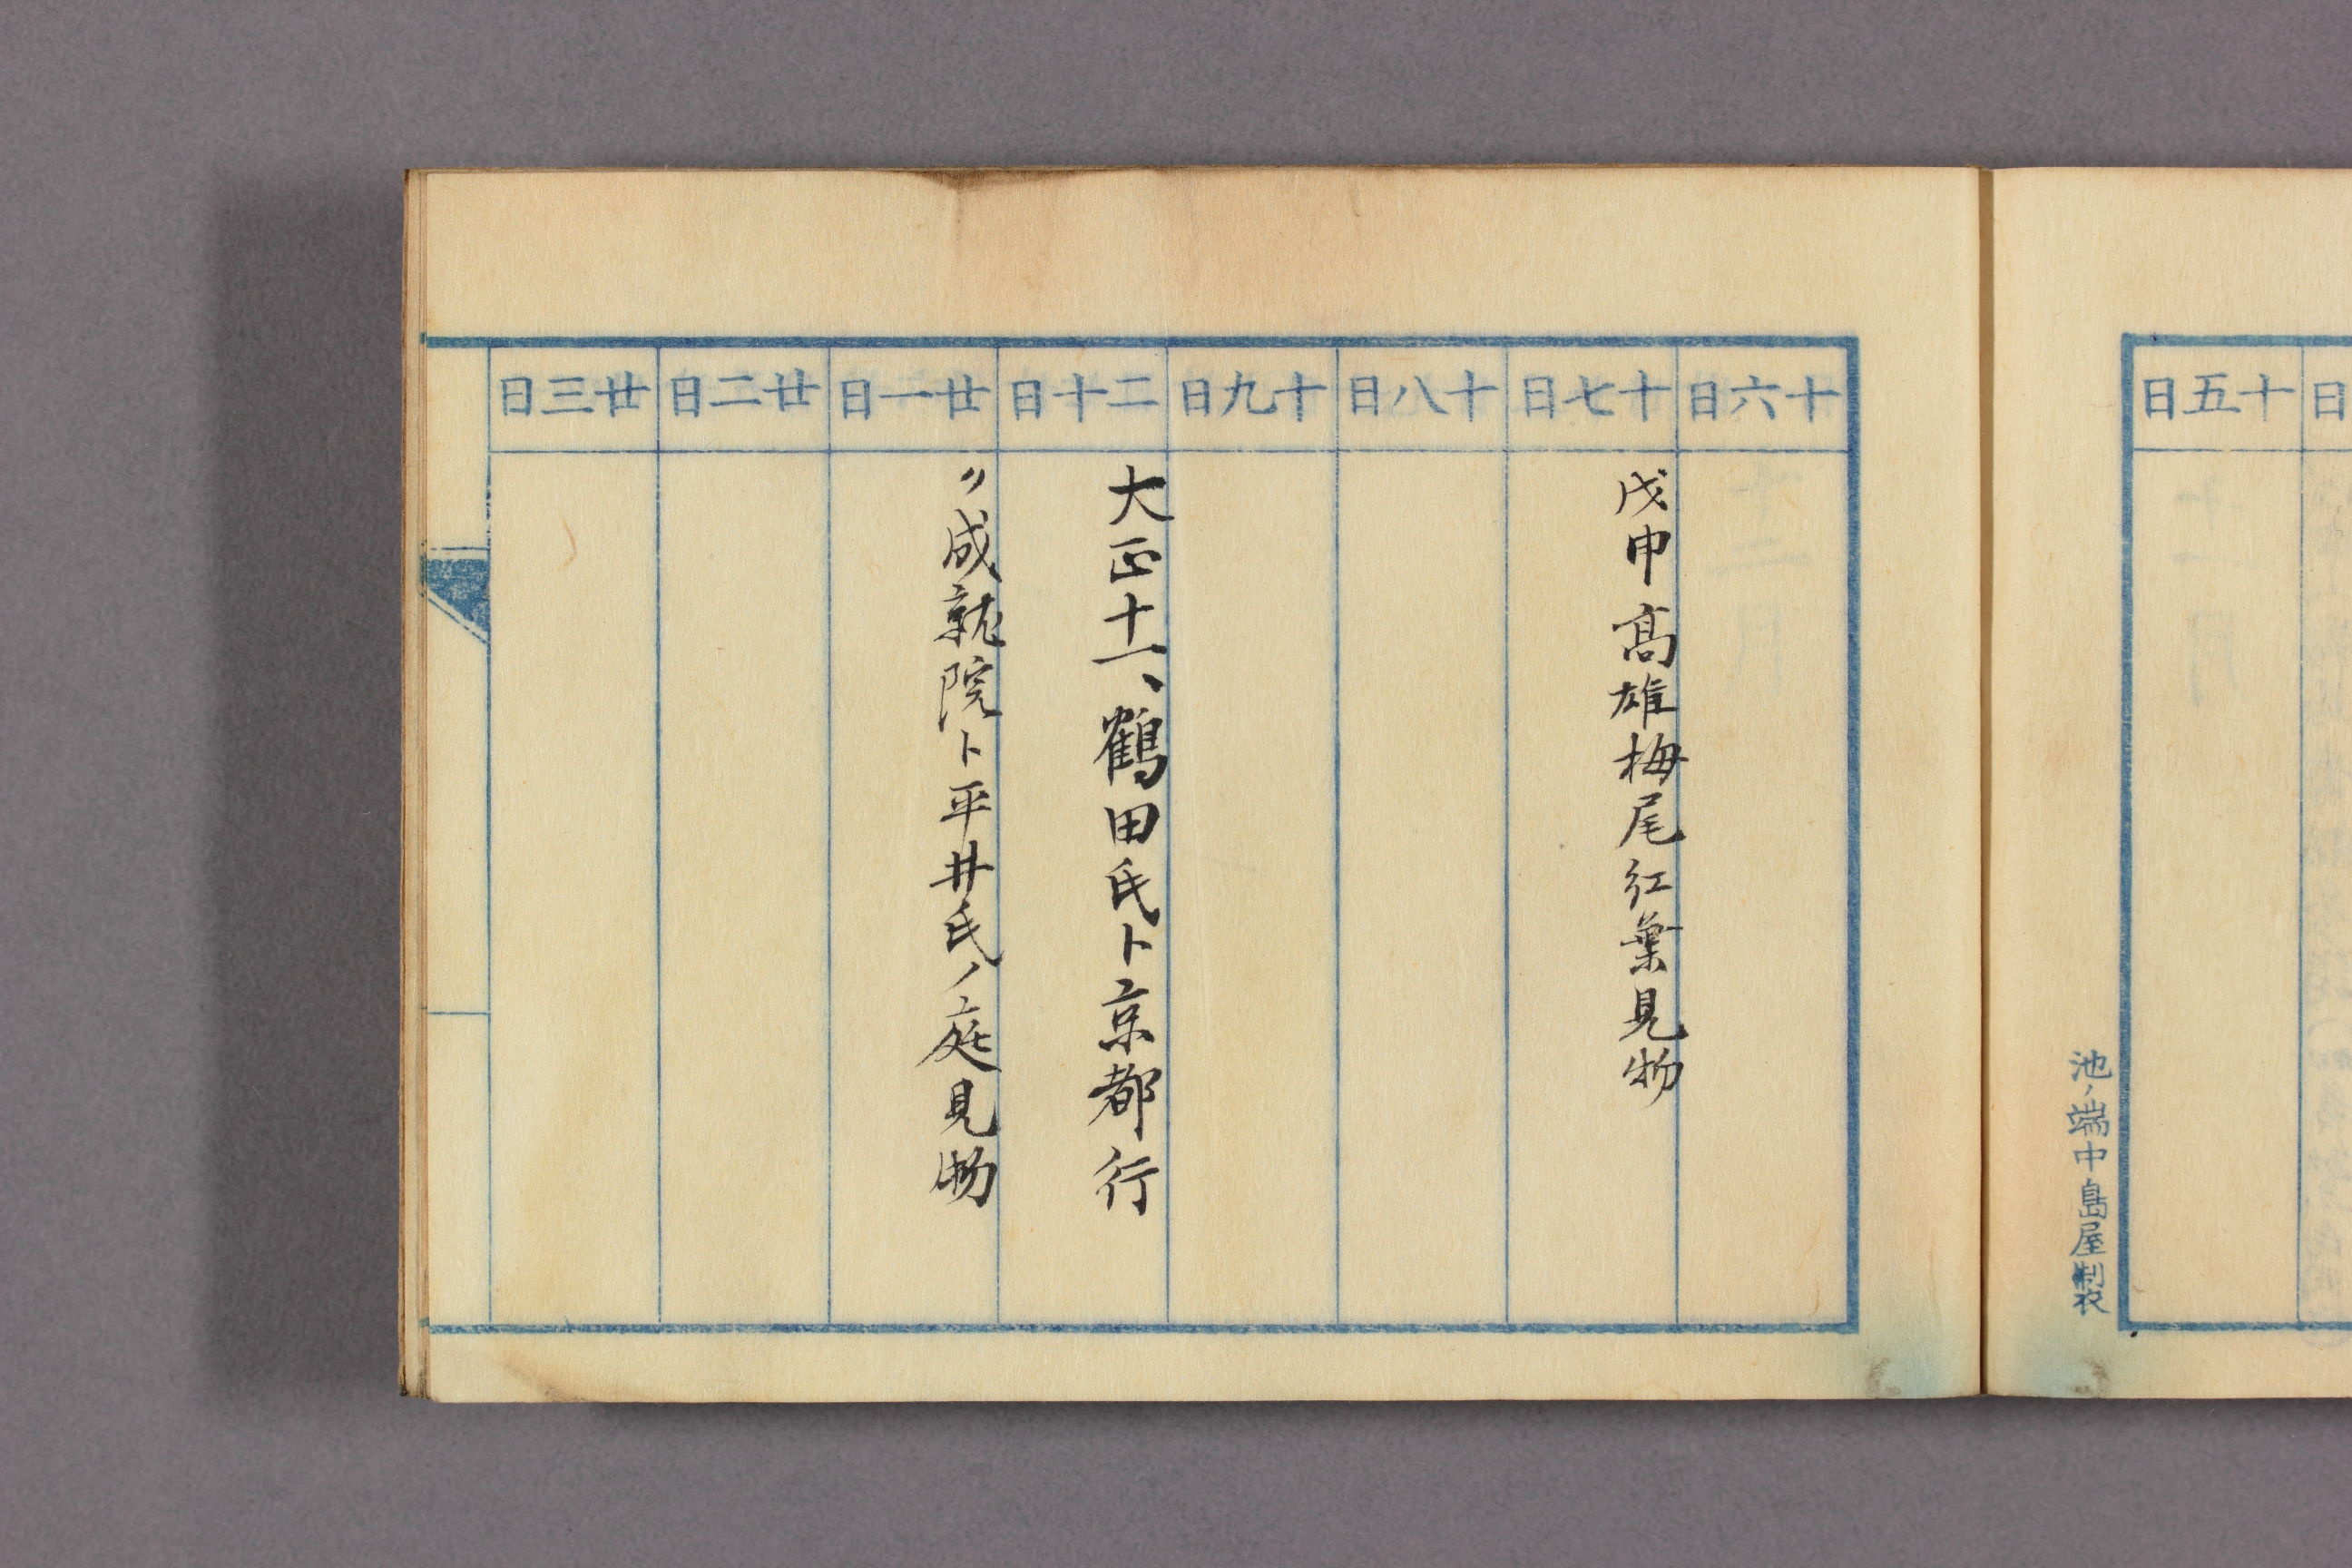 十五日
池ノ端中島屋製
十六日
十七日
戊申高雄梅尾紅葉見物
十八日
十九日
二十日
大正十一、鶴田氏ト京都行
廿一日
〃成就院ト平井氏ノ庭見物
廿二日
廿三日